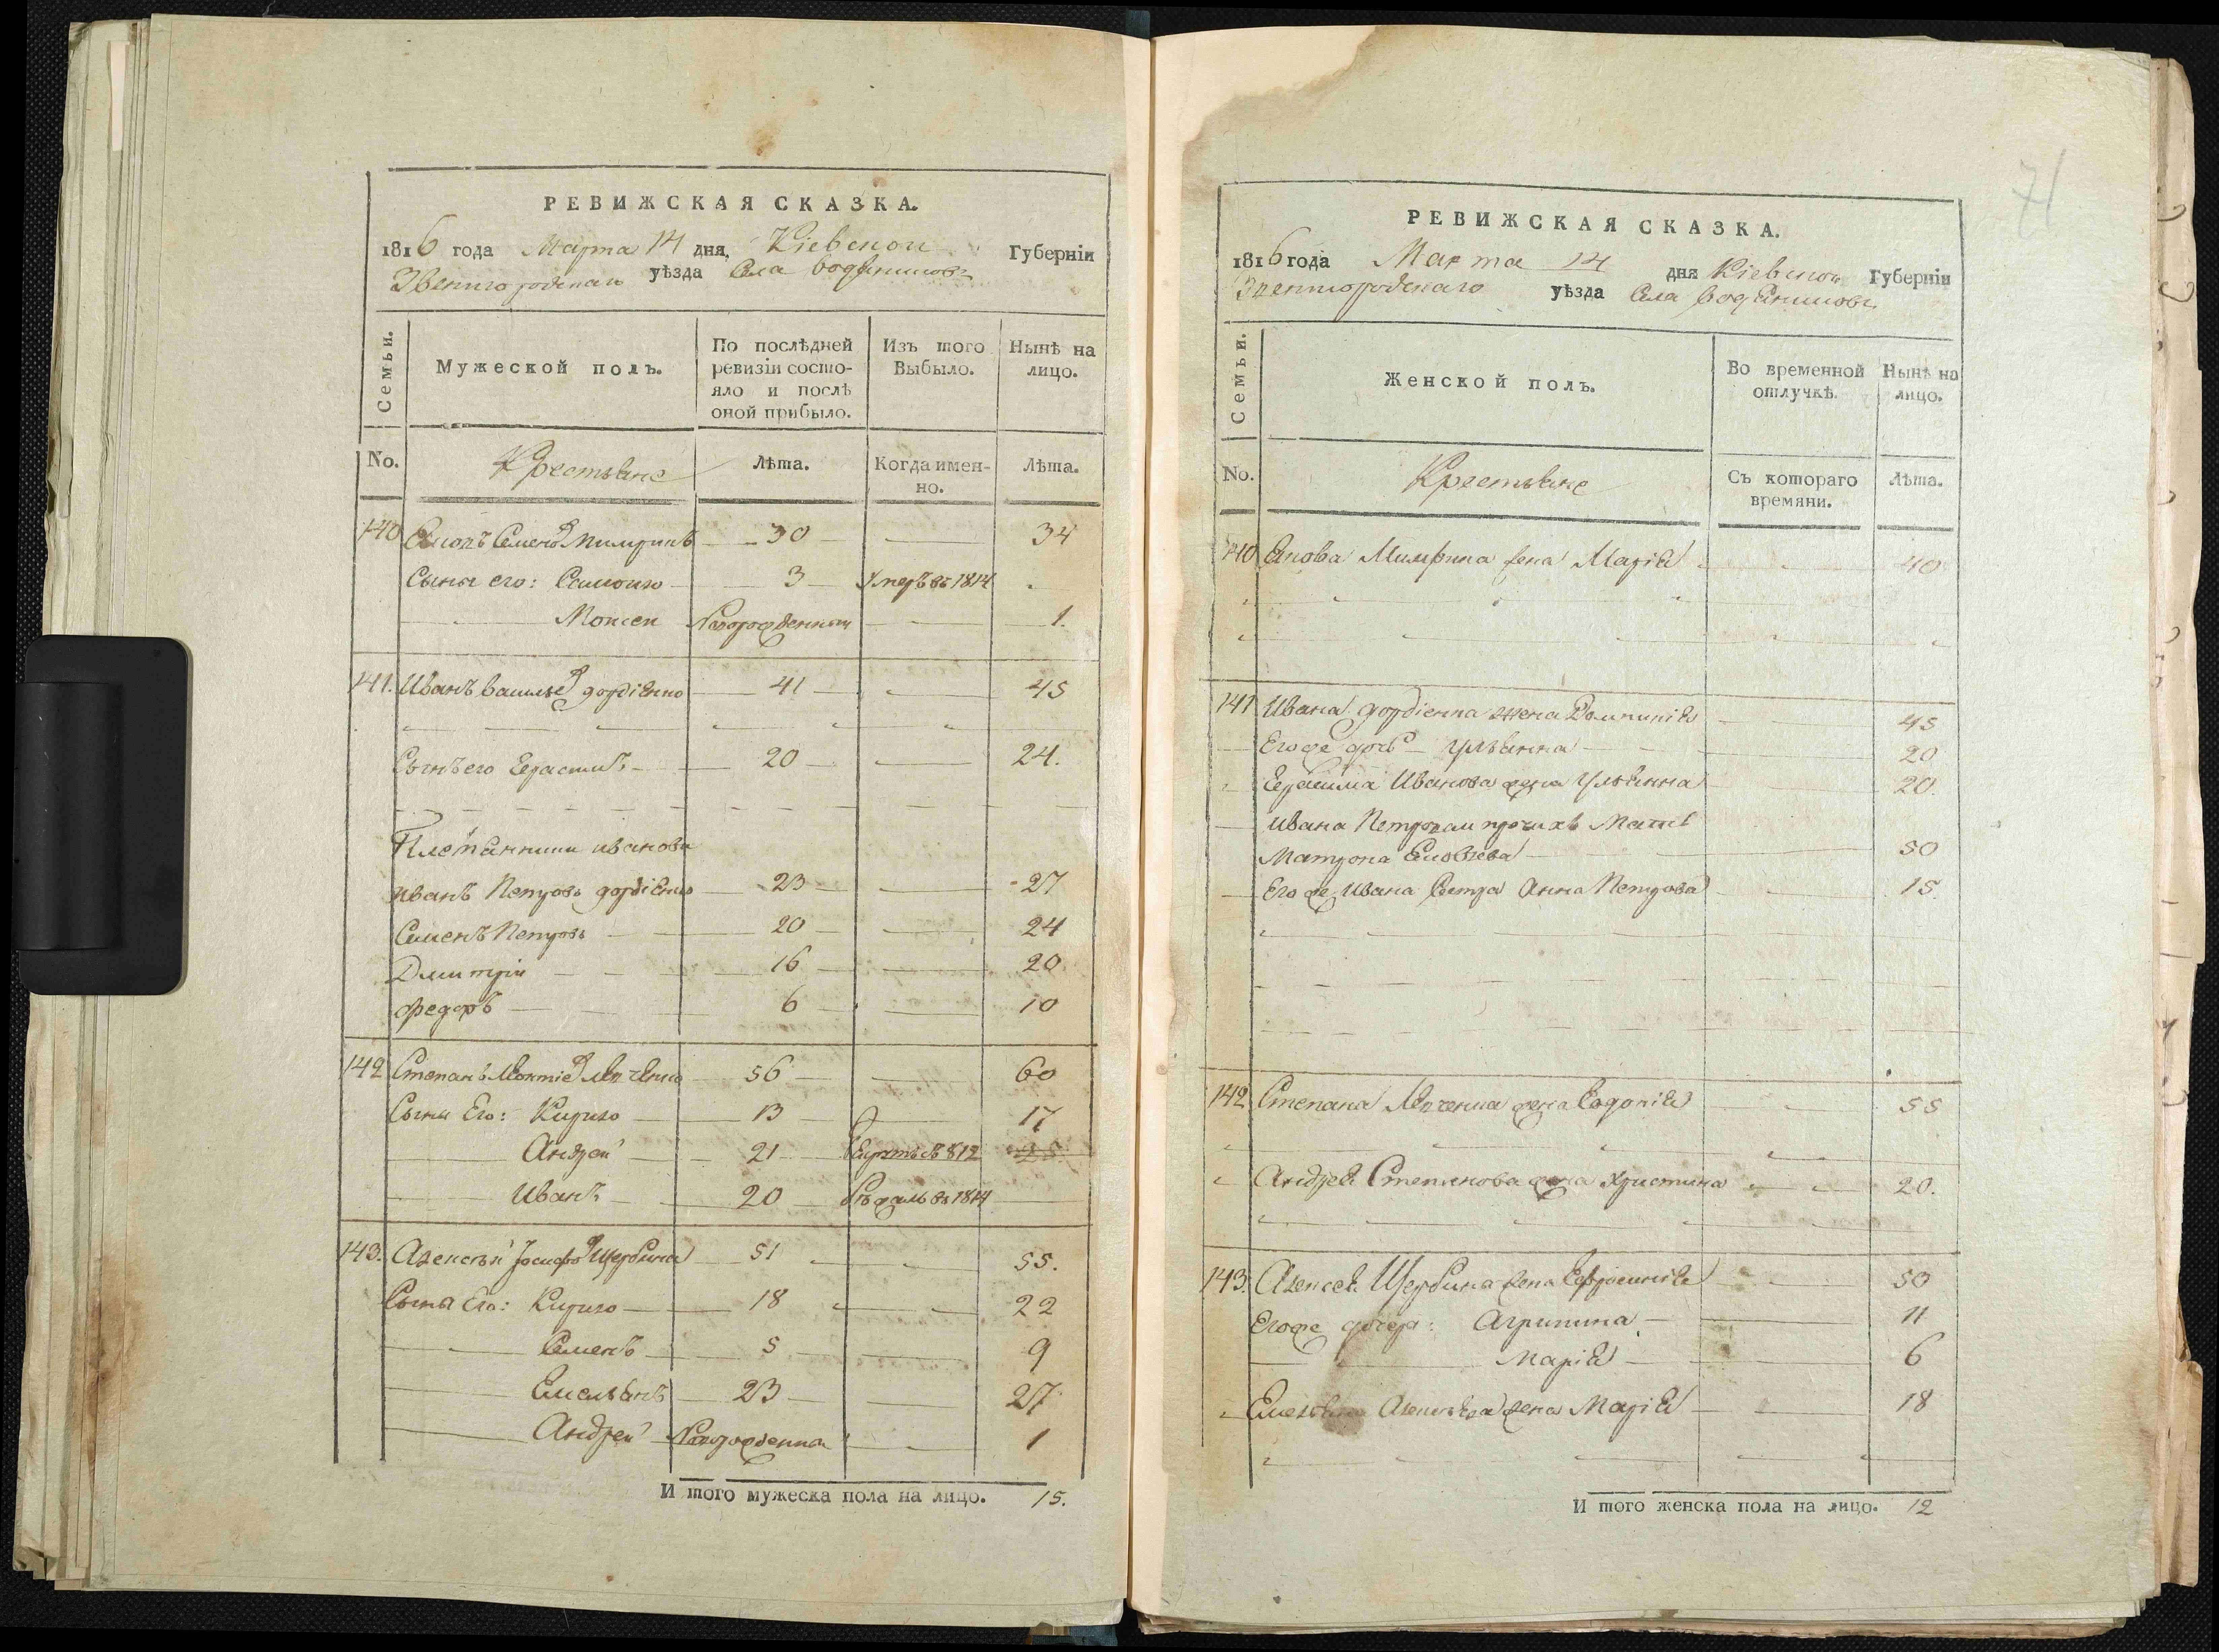 РЕВИЖСКАЯ СКАЗКА.
1816 года Марта 14 дня, Кіевской Губерніи
Звенигородскаго уѣзда Села Водяниковъ
Семьи.
Мужеской полъ.
По послѣдней ревизіи состо-
яло и послѣ
оной прибыло.
Изъ того
Выбыло.
Нынѣ на
лицо.
No.
Крестьяне
Лѣта.
Когда имен-
но.
Лѣта.
140 Семенъ 30 34
Сыны его: Самойло 3 Умеръ въ 1814
Моисей Новорожденный 1.
141. Иванъ Васильевъ Гордіенко 41 45
Сынъ его Герасимъ 20 24.
Племянники Иванова
Иванъ Петровъ Гордіенко 23 27
Семенъ Петровъ 20 24
Дмитрій 16 20
Федоръ 6 10
142 Степанъ 56 60
Сыны Его: Кирило 13 17
Андрей 21 812 25
Иванъ 20 въ 1814
143. Алексѣй Іосифовъ Щербина 51 55.
Сыны Его: Кирило 18 22
Семенъ 5 9
Емельянъ 23 27
Андрей Новорожденный 1
И того мужеска пола на лицо. 15.
71
РЕВИЖСКАЯ СКАЗКА.
1816 года Марта 14 дня Кіевской Губерніи
Звенигородскаго уѣзда Села Водяниковъ
Семьи.
Женской полъ.
Во временной
отлучкѣ.
Нынѣ на
лицо.
No.
Крестьяне
Съ котораго
времяни.
Лѣта.
140 жена Марія 40
141 Ивана Гордіенка жена Домникія 45
Его же дочь Ульянна 20
Герасима Иванова жена Ульянна 20.
Ивана Петрова и прочихъ Мать
Матрона 50
Его же Ивана Сестра Анна Петрова 15.
142 Степана жена Евдокія 55
Андрея Степанова жена Христина 20.
143. Алексея Щербина жена Ефросинія 50
Его же дочери: Агрипина 11
Марія 6
Емельяна Алексѣева жена Марія 18
И того женска пола на лицо. 12